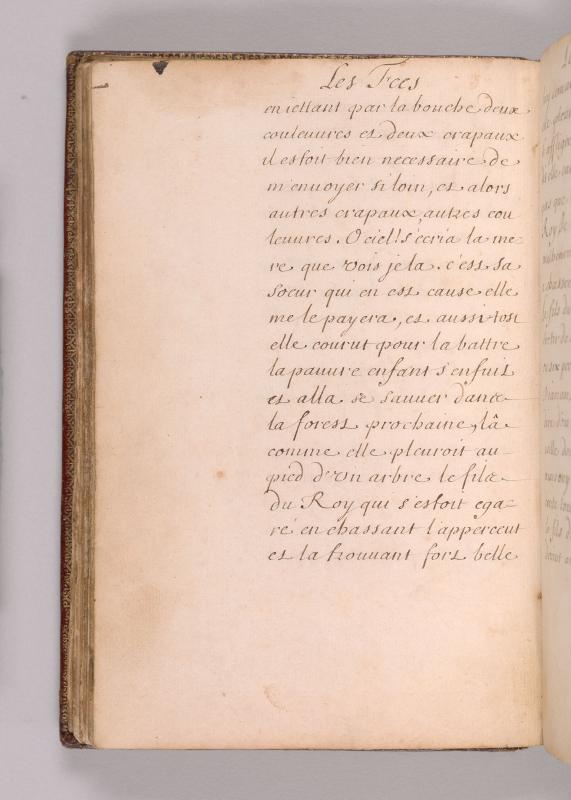 Les Fees
en iettant par la bouche deux
couleuures et deux crapaux
il estoit bien necessaire de
m'enuoyer si loin, et alors
autres crapaux, autres cou
leuures. O ciel! s'ecria la me
re que vois je la. c'est sa
soeur qui en est cause elle
me le payera, et aussi tost
elle courut pour la battre
la pauure enfant s'enfuit
et alla se sauuer dans
la forest prochaine, là
comme elle pleuroit au
pied d'vn arbre le fils
du Roy qui s'estoit ega
ré en chassant l'apperceut
et la trouuant fort belle